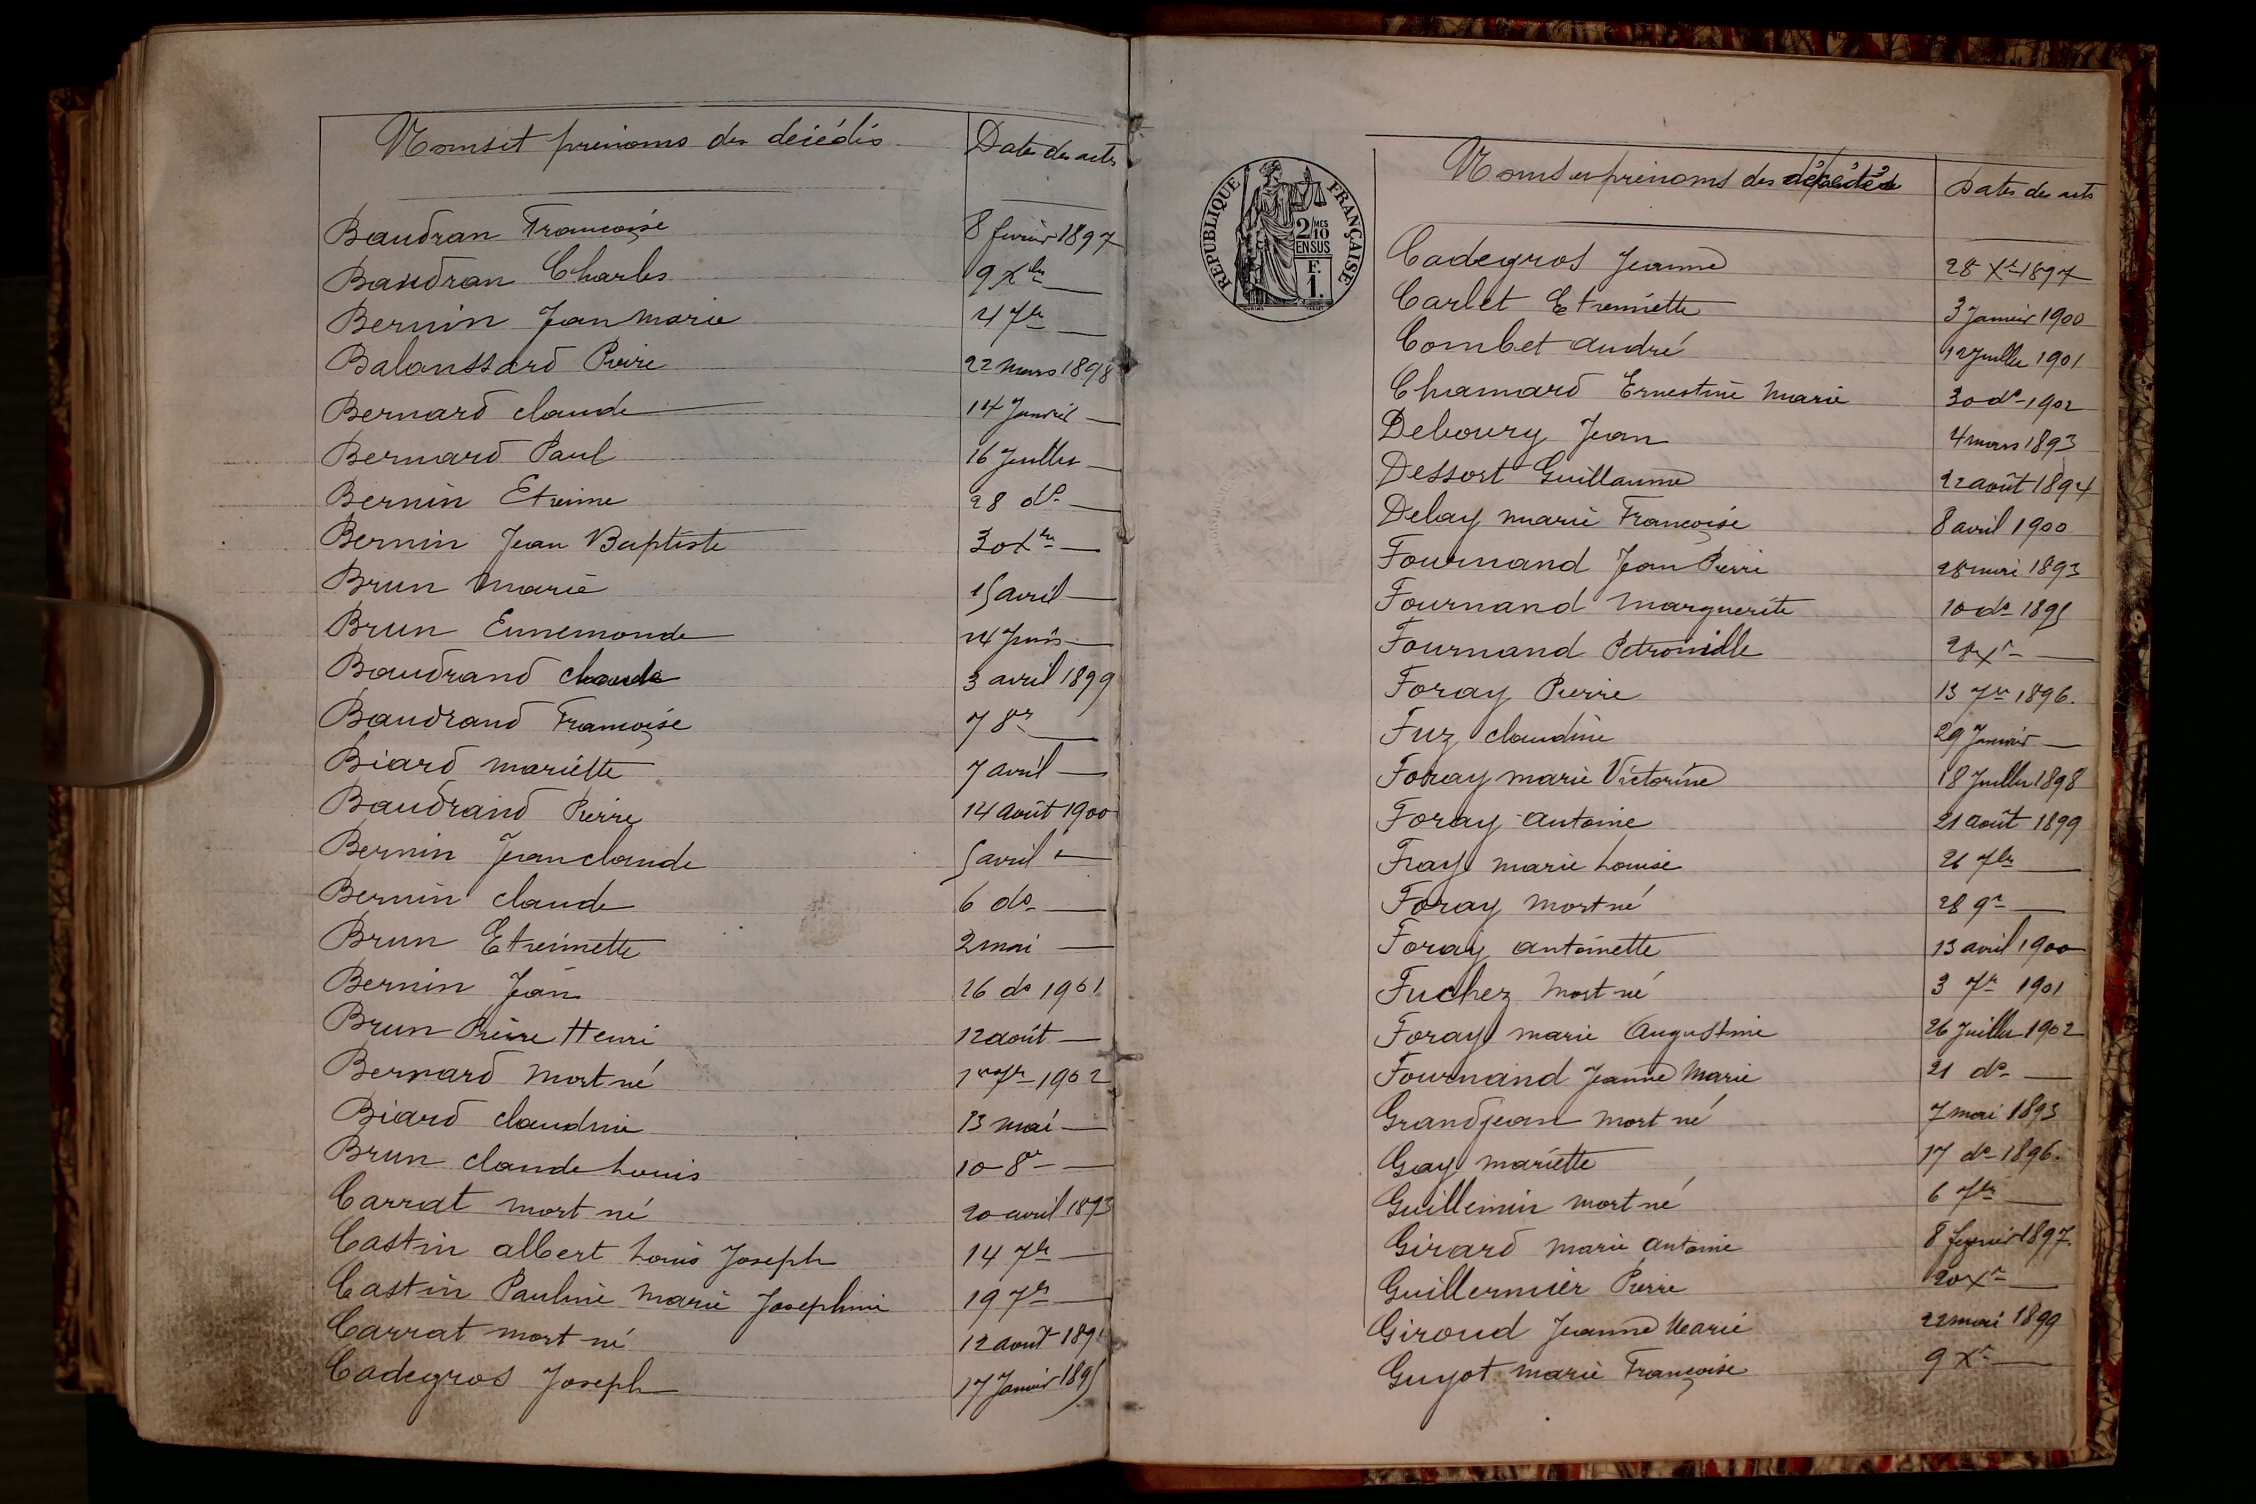 Noms et prénoms des décédés Dates des actes
Baudran Françoise 8 février 1897
Baudran Charles 9 Xbre —
Bernin Jean Marie 4 7bre —
Baloussard Pierre 22 mars 1898
Bernard Claude 14 Janvier —
Bernard Paul 16 Juillet —
Bernin Etienne 28 do —
Bernin Jean Baptiste 30 Xbre —
Brun Marie 15 avril —
Brun Ennemonde 24 Juin —
Baudrand Claude 3 avril 1899
Baudrand Françoise 7 8bre —
Biard Mariette 7 avril —
Baudrand Pierre 14 août 1900
Bernin Jean Claude 5 avril —
Bernin Claude 6 do —
Brun Etiennette 2 mai —
Bernin Jean 26 do 1901
Brun Pierre Henri 12 août —
Bernard Mort né 1er 7bre 1902
Biard Claudine 13 mai —
Brun Claude Louis 10 8bre —
Carrat mort né 20 avril 1893
Castin Albert Louis Joseph 14 7bre —
Castin Pauline Marie Josephine 19 7bre —
Carrat mort né 12 août
Cadegros Joseph 17 Janvier 1895
REPUBLIQUE FRANÇAISE
2/10 MES
EN SUS
F.
1.
Noms et prénoms des décédés Dates des actes
Cadegros Jeanne 28 Xre 1897
Carlet Etiennette 3 Janvier 1900
Combet André 12 Juillet 1901
Chamard Ernestine Marie 30 do 1902
Deboury Jean 4 mars 1893
Dessort Guillaume 22 août 1894
Delay Marie Françoise 8 avril 1900
Fournand Jean Pierre 28 mai 1893
Fournand Marguerite 10 do 1895
Fournand Petronille 28 Xre —
Foray Pierre 13 7bre 1896.
Fuz Claudine 29 Janvier —
Foray Marie Victorine 18 Juillet 1898
Foray Antoine 21 août 1899
Fray Marie Louise 26 7bre —
Foray Mort né 28 9re —
Foray Antoinette 13 avril 1900
Fuchez Mort né 3 7re 1901
Foray Marie Augustine 26 Juillet 1902
Fournand Jeanne Marie 21 do —
Grandjean mort né 7 mai 1893
Gay Mariette 17 do 1896.
Guillemin mort né 6 7bre —
Girard Marie Antoine 8 février 1897
Guillermier Pierre 20 Xre —
Giroud Jeanne Marie 22 mai 1899
Guyot Marie Françoise 9 Xre —